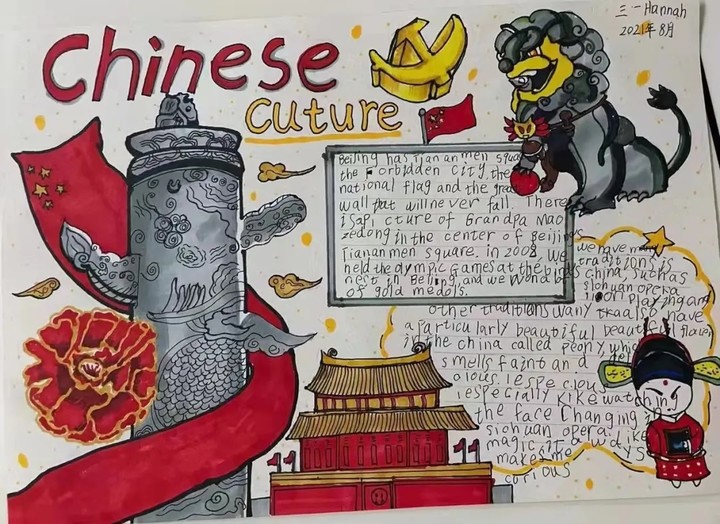 Chinese
cuture
三一Hannah
2021年8月
Beijing has tian an men squa
the Forbidden City, the
national flag and the grea
wall pat will never fall. There
isapi cture of Grandpa Mao
zedong in the center of Beijin
Tiananmen square. in 2008, we
held the olympic Games at the bird's
nest in Beijing, and we won a
of gold medols.
we have man
traditions in
china, such as
sichuan opera
playing an
other traditions
a particularly beautiful beautiful flower
in the china called peony whic
smells faint an d
cious. I espe ciou
i especially like watchin
the face Changing
sichuan opera.
magic
makes me
curious